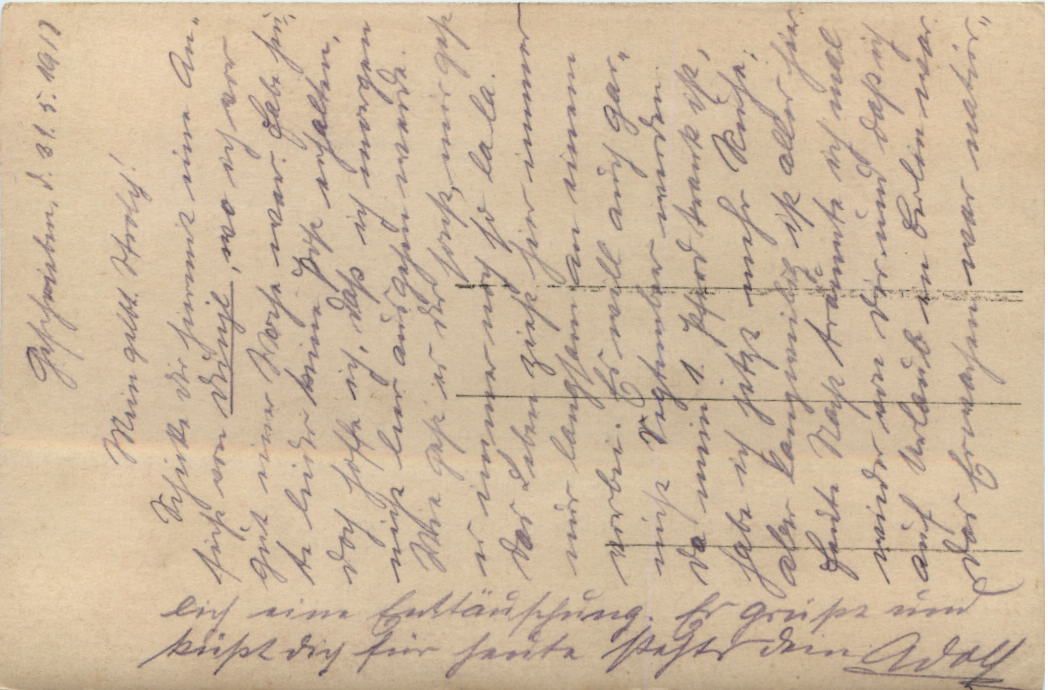 Geschrieben, d. 31.5.1917
Mein gelbt. Herzl!
Schicke dir hiermit eine An-
sicht von, wo ich vor
gut einer Woche war. Habe heu-
te leider keine Post erhalten,
doch hoffe ich, daß ich morgen
nicht leer ausgehen werde.
Wie geht es dir sonst, mir geht
es immer noch so la la.
Das Leben zieht hier immer
nur langsam an einem
vorbei. Es soll auch gar
nicht werden.
Da mein 1. Pferd krank ist,
habe ich jetzt mehr Ruhe,
aber langweilig ist aller hier.
Heute Nacht träumte ich mal
wieder von dir und daß ich
auf Urlaub in Berlin war.
Das Erwachen war natür-
lich eine Enttäuschung. Es grüßt und
küßt dich für heute stehts dein Adolf